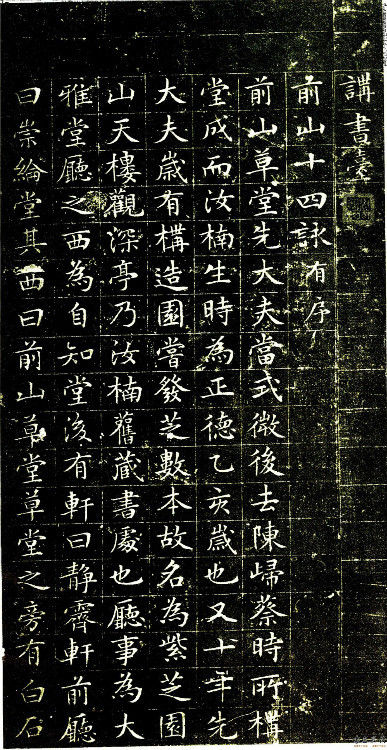 講書臺
前山十四詠有序
前山草堂先大夫當式微後去陳歸蔡時所構
堂成而汝楠生時為正德乙亥歲也又十年先
大夫歲有構造園嘗發芝數本故名為紫芝園
山天樓觀深亭乃汝楠舊藏書處也廳事為大
雅堂廳之西為自知堂後有軒曰靜霽軒前廳
曰崇綸堂其西曰前山草堂草堂之旁有白石